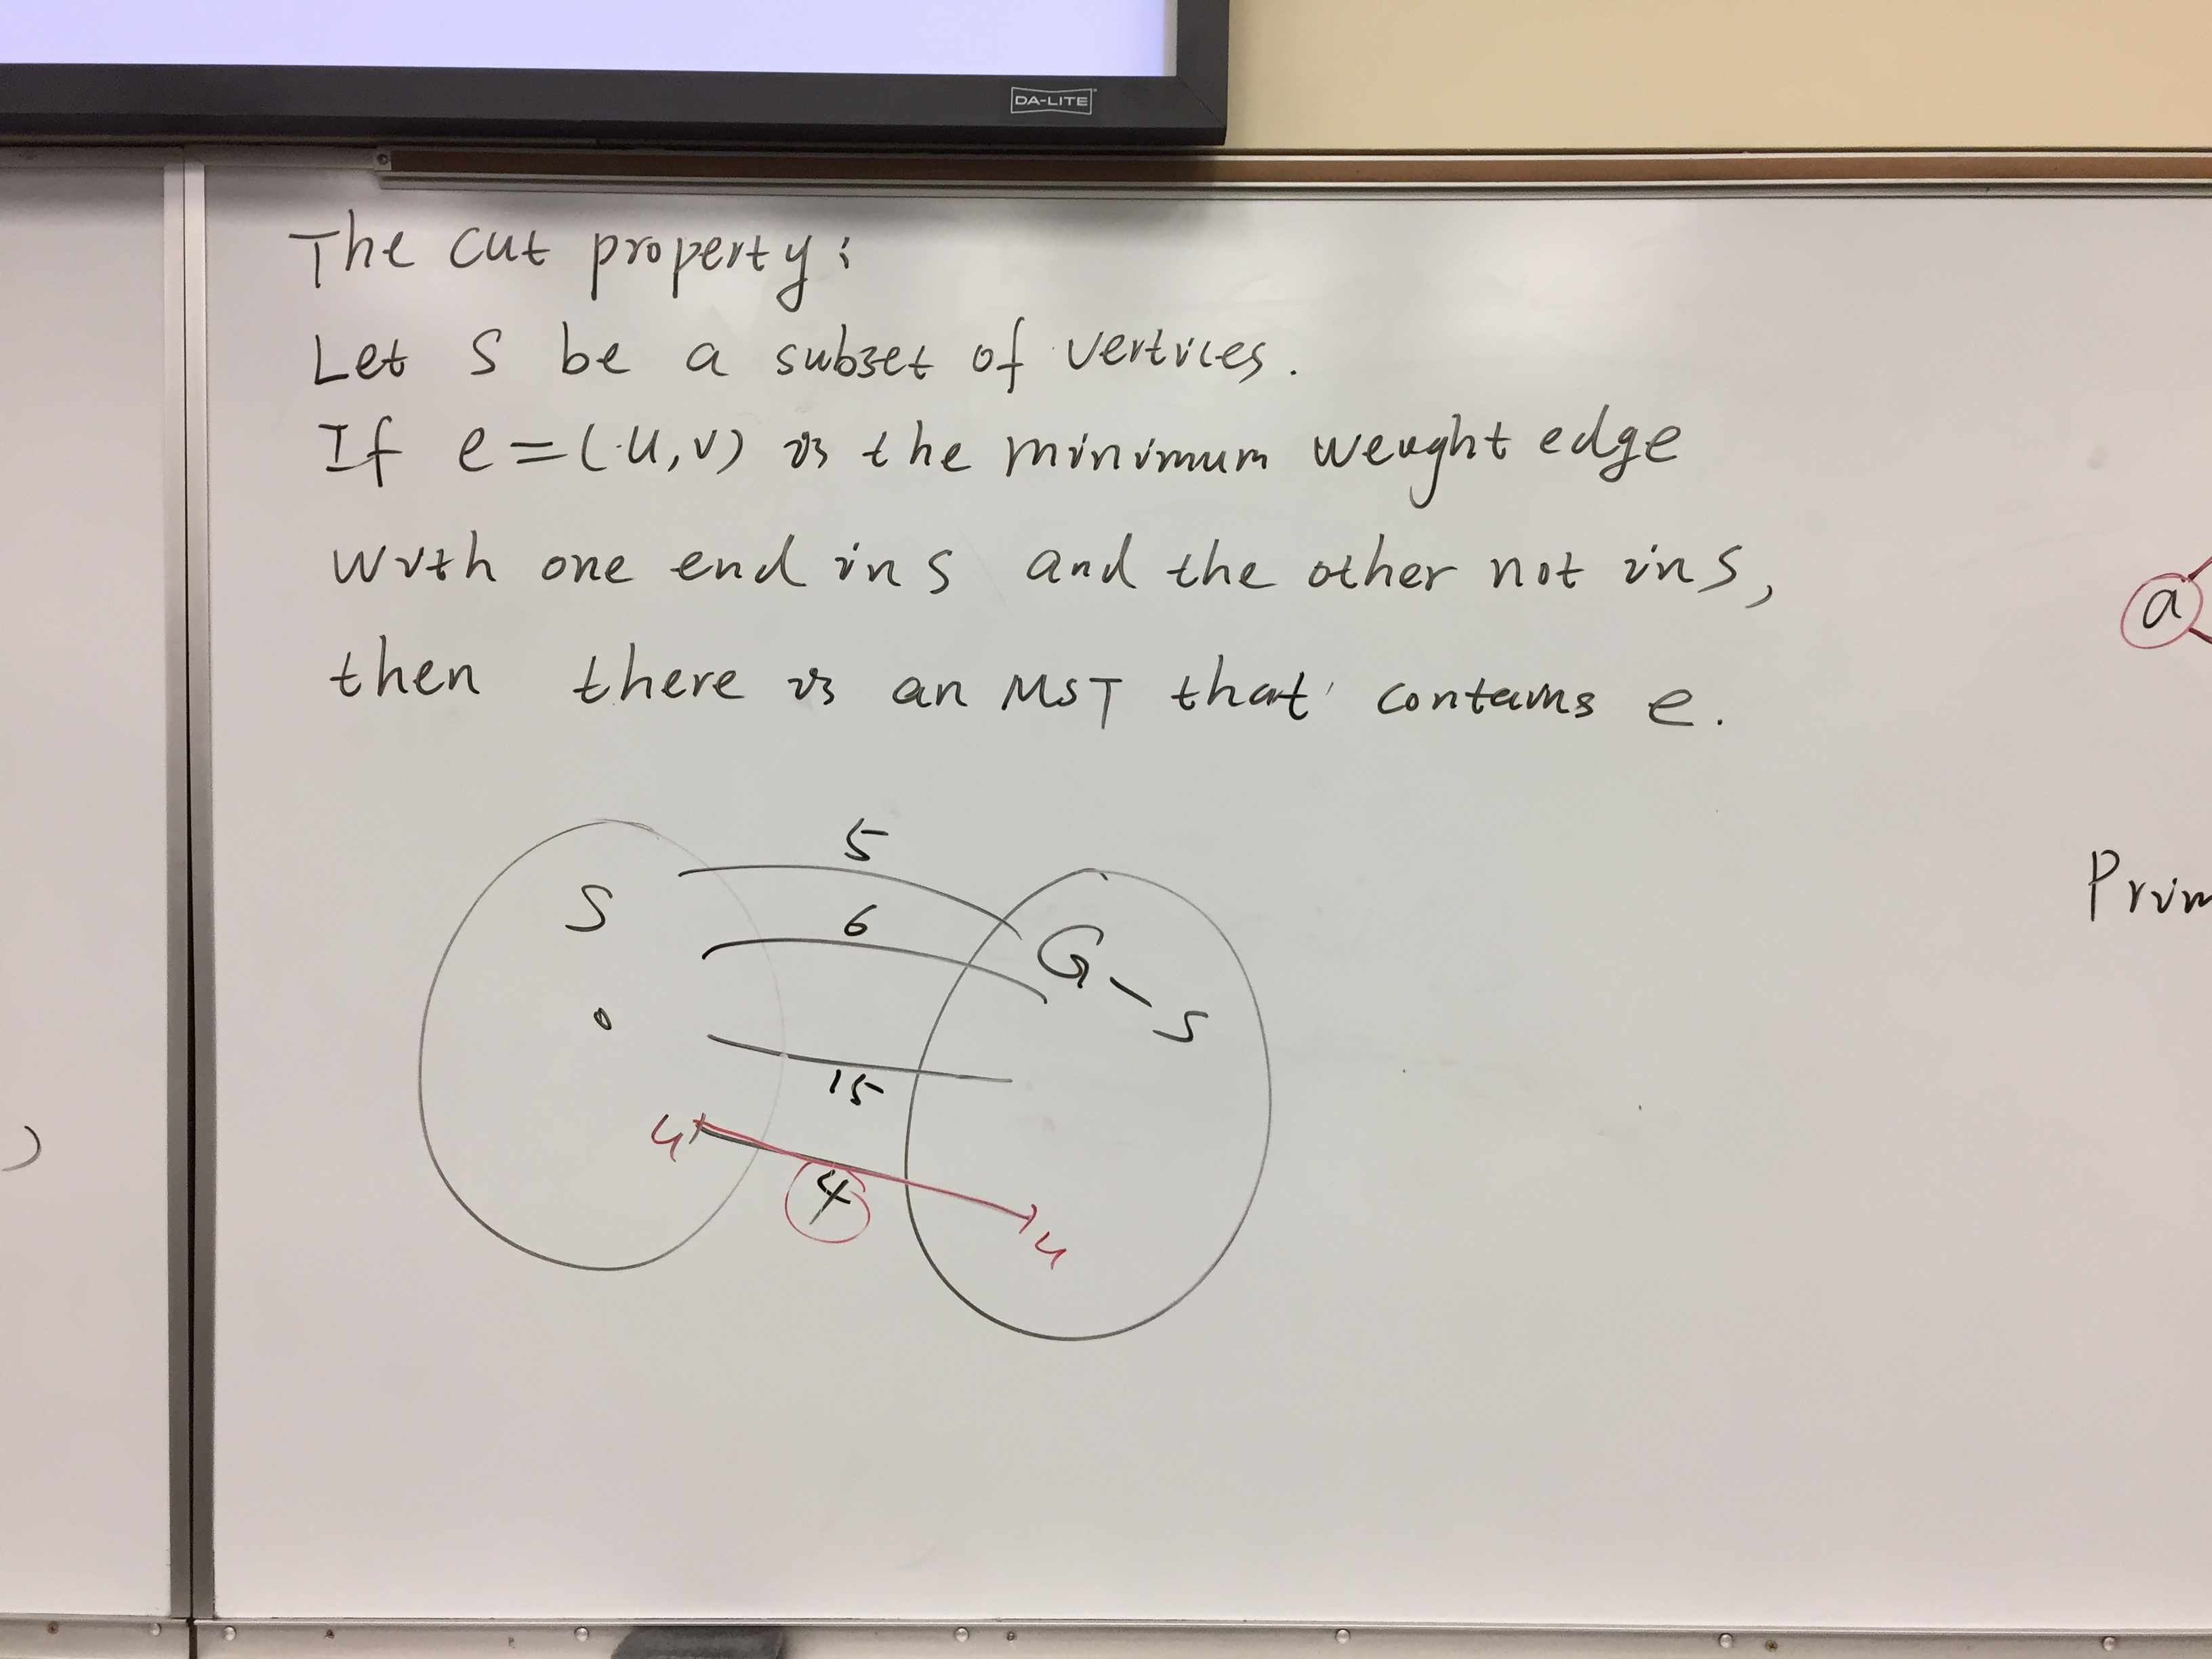 DA-LITE
The cut property:
Let S be a subset of vertices.
If e=(u,v) is the minimum weight edge
with one end in S and the other not in S,
then there is an MST that contains e.
a
5
S
6
G-S
Prim
15
u
4
u
)